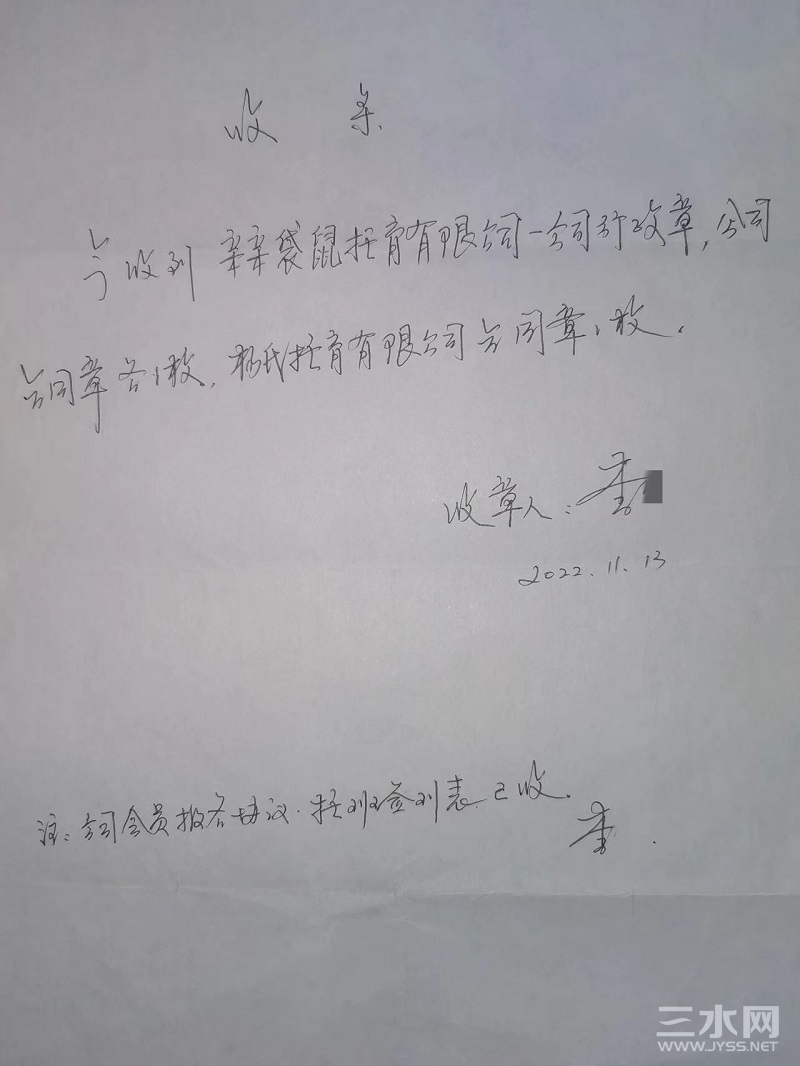 收 条
今收到 辛辛袋鼠托育有限公司一公司行政章,公司
合同章各1枚,杨氏托育有限公司合同章1枚.
收章人: 李
2022.11.13
注: 公司会员报名协议.托班签到表已收.
李.
三水网
WWW.JYSS.NET